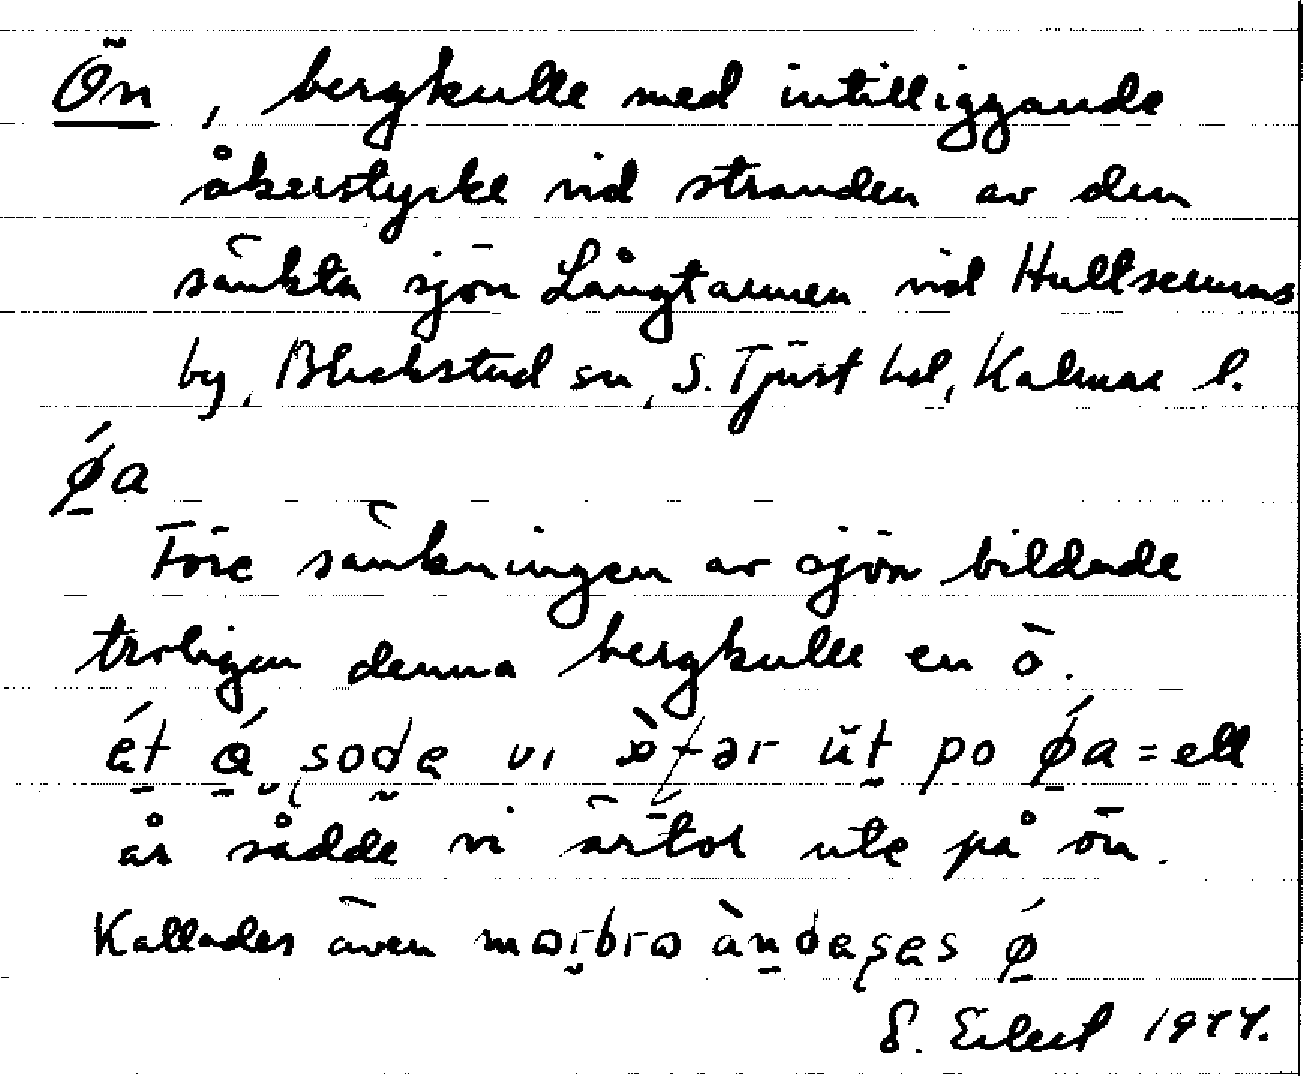 Ön, bergkulle med intilliggande
åkerstycke vid stranden av den
sänkta sjön Långtarmen vid Hultserums
by, Blackstad sn, S. Tjust hd, Kalmar l.
ǿ̠a
Före sänkningen av sjön bildade
troligen denna bergkulle en ö.
po ǿ̠a = ett
år sådde vi ärtor ute på ön.
Kallades även
1977.